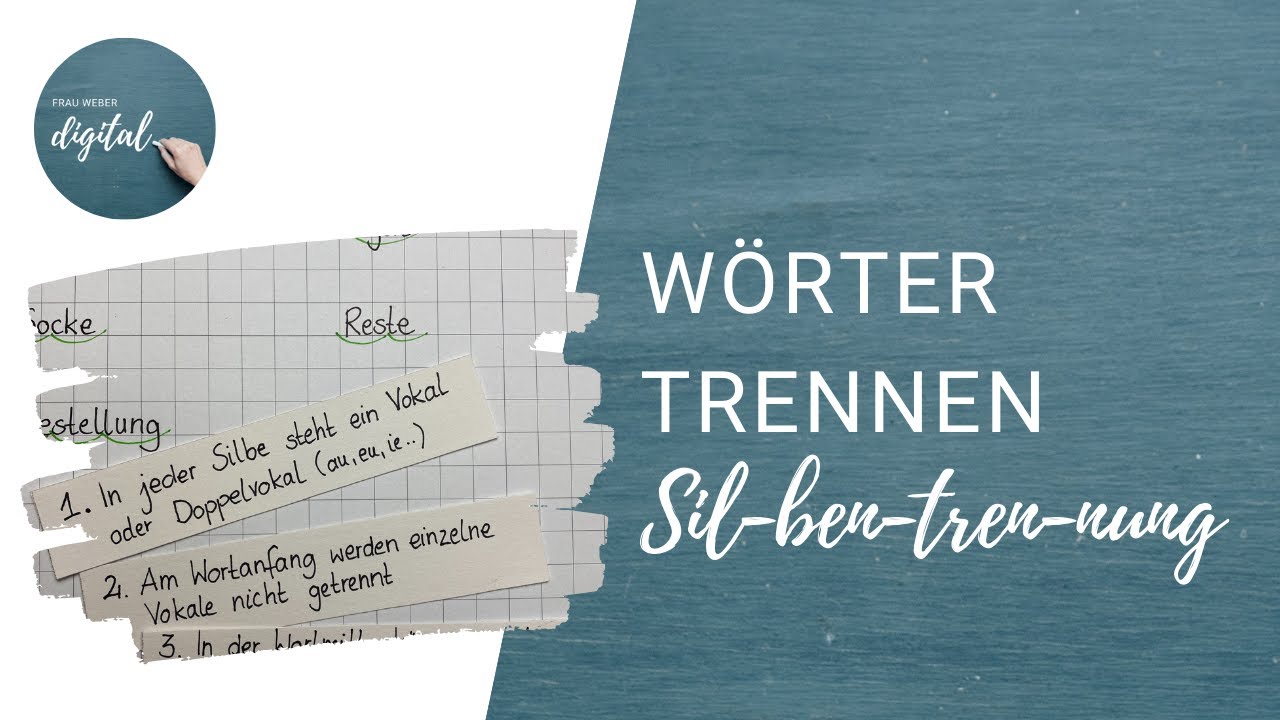 FRAU WEBER
digital
Reste
1. In jeder Silbe steht ein Vokal
oder Doppelvokal (au, eu, ie..)
2. Am Wortanfang werden einzelne
Vokale nicht getrennt
3. In der
WÖRTER
TRENNEN
Sil-ben-tren-nung